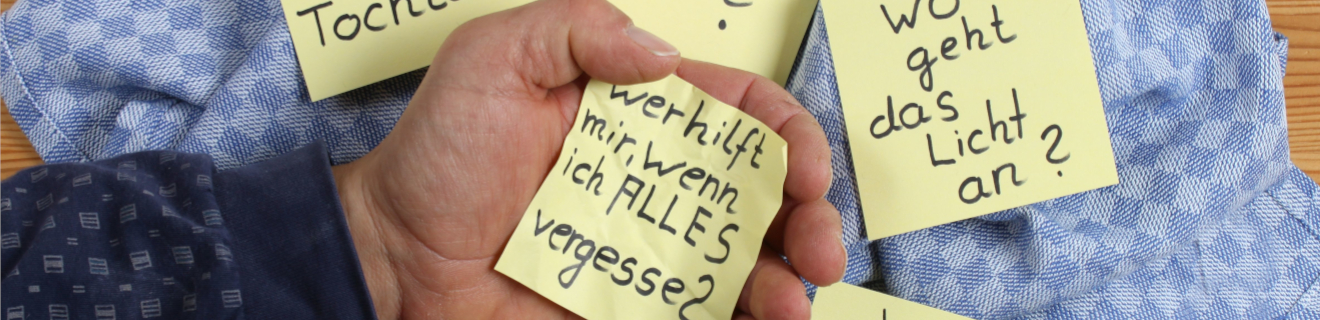 ?
wer hilft
mir, wenn
ich ALLES
vergesse?
wo
geht
das
Licht
an?